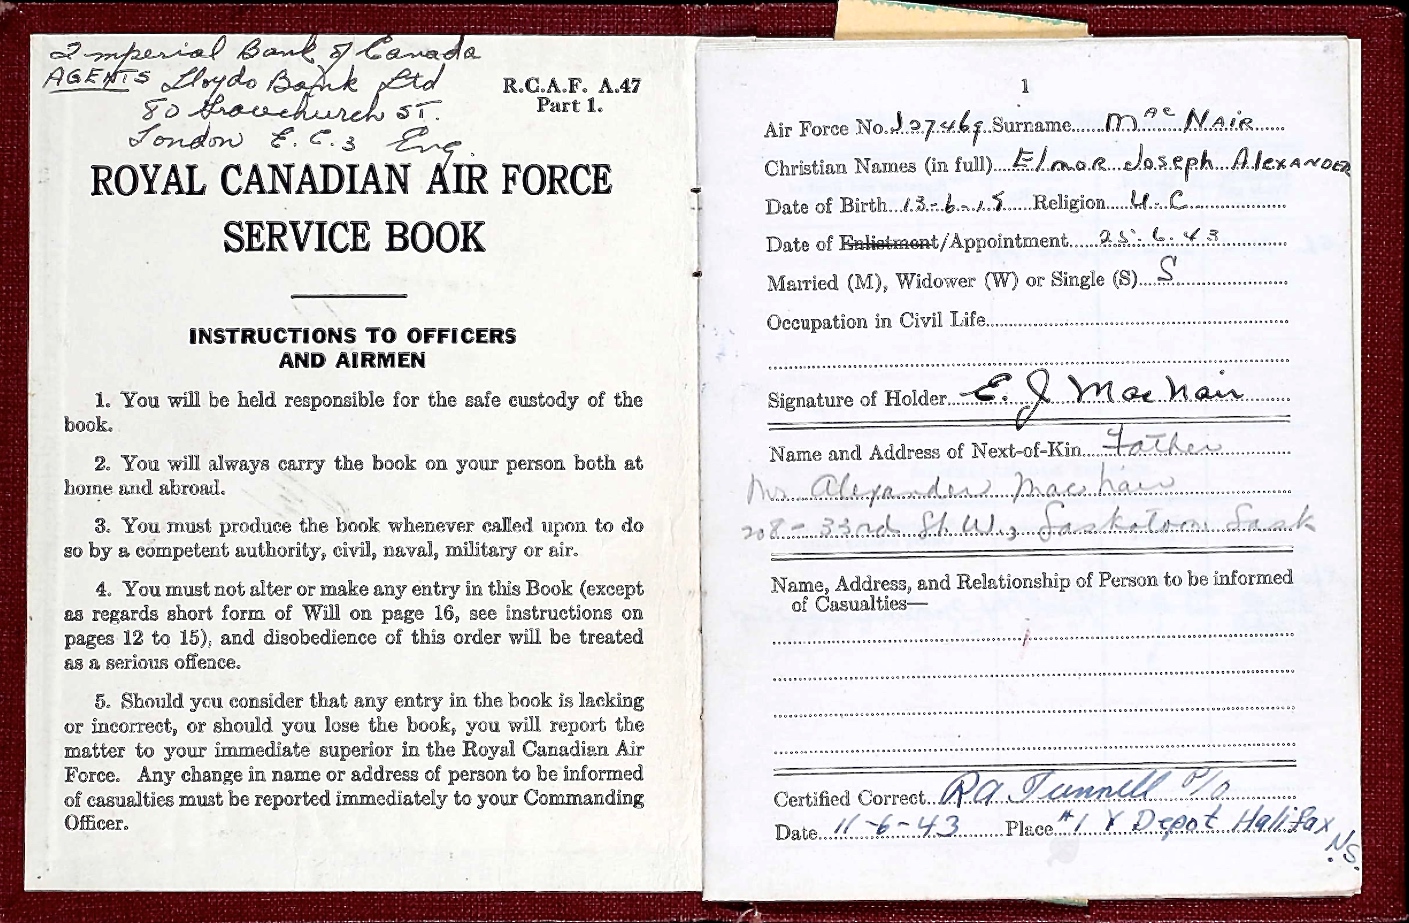 Imperial Bank of Canada
AGENTS Lloyds Bank Ltd
80 Gracechurch ST.
London E.C.3 Eng.
R.C.A.F. A.47
Part 1.
ROYAL CANADIAN AIR FORCE
SERVICE BOOK
INSTRUCTIONS TO OFFICERS
AND AIRMEN
1. You will be held responsible for the safe custody of the
book.
2. You will always carry the book on your person both at
home and abroad.
3. You must produce the book whenever called upon to do
so by a competent authority, civil, naval, military or air.
4. You must not alter or make any entry in this Book (except
as regards short form of Will on page 16, see instructions on
pages 12 to 15), and disobedience of this order will be treated
as a serious offence.
5. Should you consider that any entry in the book is lacking
or incorrect, or should you lose the book, you will report the
matter to your immediate superior in the Royal Canadian Air
Force. Any change in name or address of person to be informed
of casualties must be reported immediately to your Commanding
Officer.
1
Air Force No. J27469 Surname MacNAIR
Christian Names (in full) Elmor Joseph AlexANDER
Date of Birth 13-6-15 Religion U.C.
Date of Enlistment/Appointment 25.6.43
Married (M), Widower (W) or Single (S) S
Occupation in Civil Life
Signature of Holder E. J MacNair
Name and Address of Next-of-Kin Father
Mr. Alexander MacNair
208-33rd St. W., Saskatoon Sask
Name, Address, and Relationship of Person to be informed
of Casualties—
Certified Correct RA Tunnell P/O
Date 11-6-43 Place #1 Y Depot Halifax
N.S.